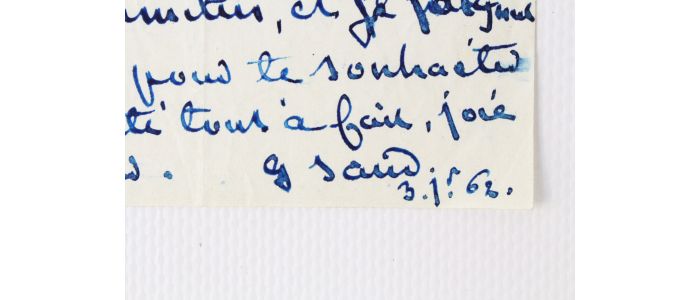 et je
pour te souhaiter
té tout à fait, joie
G Sand.
3. jr 62.